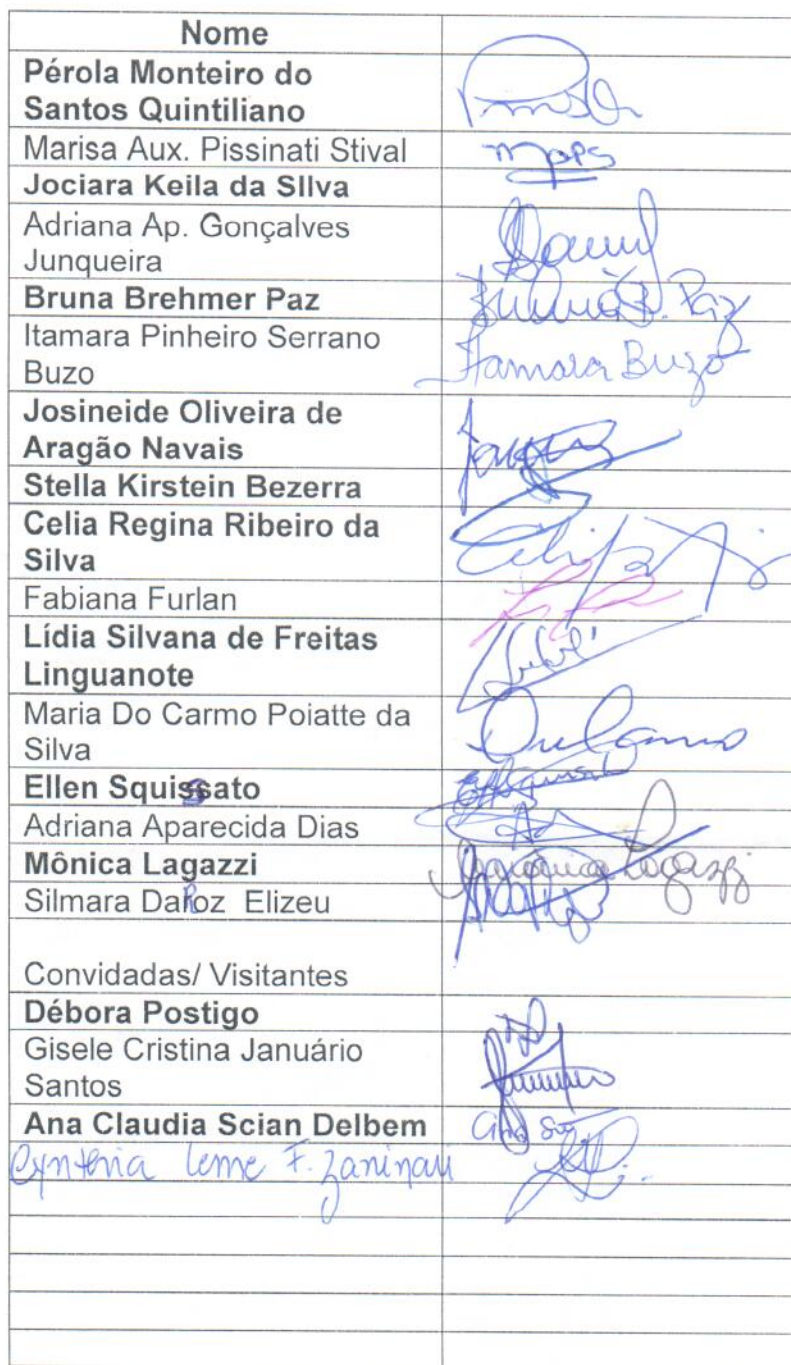 Nome
Pérola Monteiro do
Santos Quintiliano
Marisa Aux. Pissinati Stival
maps
Jociara Keila da SIlva
Adriana Ap. Gonçalves
Junqueira
Bruna Brehmer Paz
Bruna B. Paz
Itamara Pinheiro Serrano
Buzo
Itamara Buzo
Josineide Oliveira de
Aragão Navais
Stella Kirstein Bezerra
Celia Regina Ribeiro da
Silva
Fabiana Furlan
Lídia Silvana de Freitas
Linguanote
Maria Do Carmo Poiatte da
Silva
Ellen Squissato
Adriana Aparecida Dias
Mônica Lagazzi
Mônica Lagazzi
Silmara DaRoz Elizeu
Convidadas/ Visitantes
Débora Postigo
Gisele Cristina Januário
Santos
Ana Claudia Scian Delbem
Cynthia Leme F.